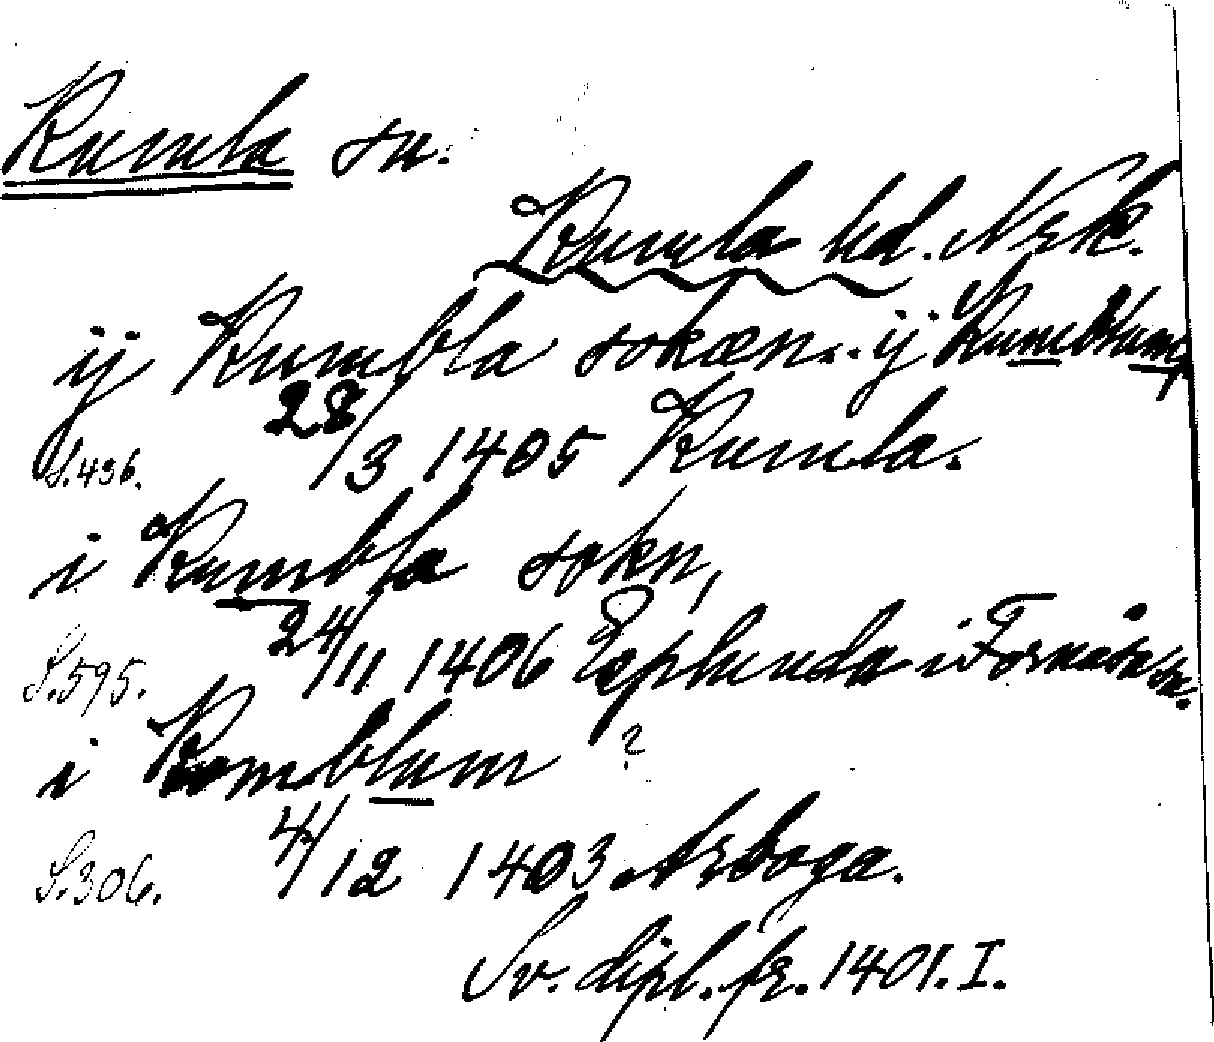 Kumla sn.
Kumla hd. Nrk.
ij Kumbla sokæn.. ij Kumblum,
S.436. 28/3 1405 Kumla.
i Kumbla sokn,
S.595. 24/11 1406 Esplunda i Tornäsa sn.
i Komblum ?
S.306. 4/12 1403 Arboga.
Sv. dipl. fr. 1401. I.